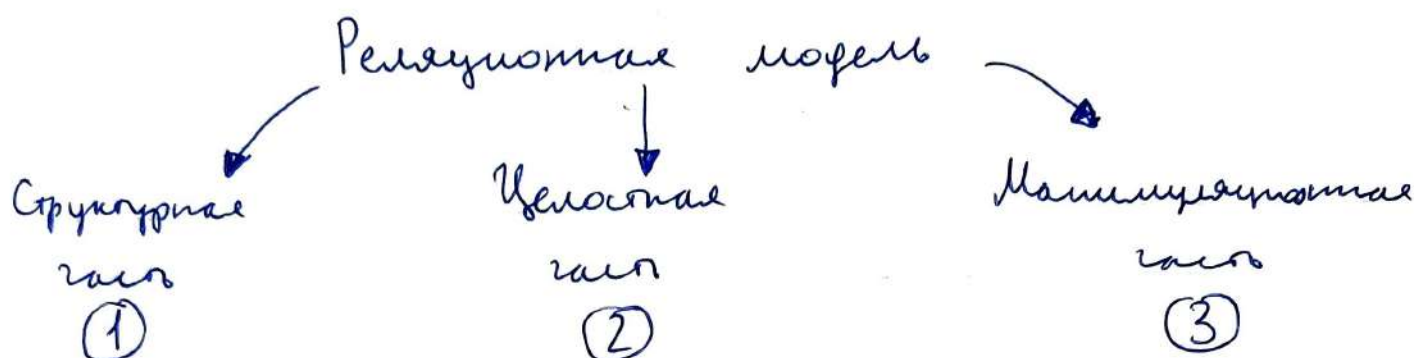 Реляционная модель
Структурная
часть
1
Целостная
часть
2
Манипуляционная
часть
3